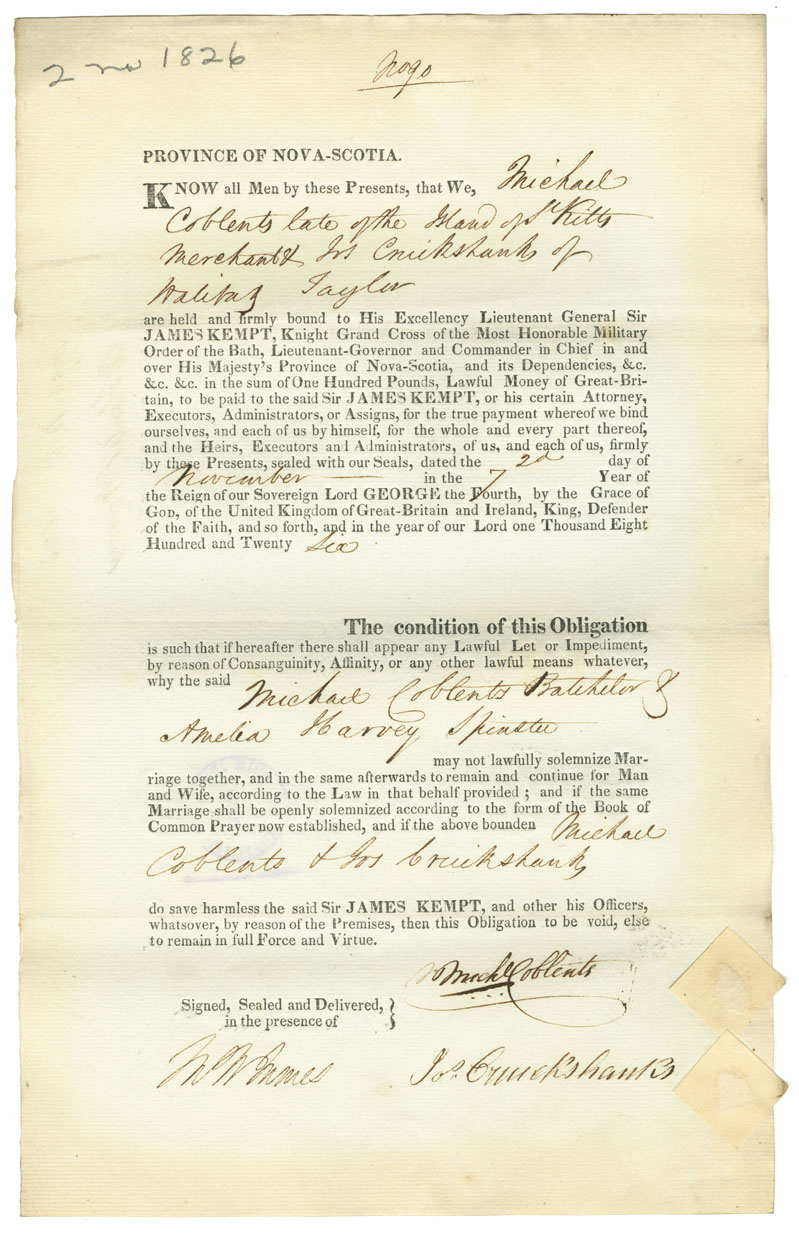 2 no 1826
No 90
PROVINCE OF NOVA-SCOTIA.
KNOW all Men by these Presents, that We, Michael
Coblents late of the Island of St Kitts
Merchant & Jos Cruickshank of
Halifax Taylor
are held and firmly bound to His Excellency Lieutenant General Sir
JAMES KEMPT, Knight Grand Cross of the Most Honorable Military
Order of the Bath, Lieutenant-Governor and Commander in Chief in and
over His Majesty's Province of Nova-Scotia, and its Dependencies, &c.
&c. &c. in the sum of One Hundred Pounds, Lawful Money of Great-Bri-
tain, to be paid to the said Sir JAMES KEMPT, or his certain Attorney,
Executors, Administrators, or Assigns, for the true payment whereof we bind
ourselves, and each of us by himself, for the whole and every part thereof,
and the Heirs, Executors and Administrators, of us, and each of us, firmly
by these Presents, sealed with our Seals, dated the 2d day of
November in the 7 Year of
the Reign of our Sovereign Lord GEORGE the Fourth, by the Grace of
GOD, of the United Kingdom of Great-Britain and Ireland, King, Defender
of the Faith, and so forth, and in the year of our Lord one Thousand Eight
Hundred and Twenty Six
The condition of this Obligation
is such that if hereafter there shall appear any Lawful Let or Impediment,
by reason of Consanguinity, Affinity, or any other lawful means whatever,
why the said Michael Coblents Batchelor &
Amelia Harvey Spinster
may not lawfully solemnize Mar-
riage together, and in the same afterwards to remain and continue for Man
and Wife, according to the Law in that behalf provided ; and if the same
Marriage shall be openly solemnized according to the form of the Book of
Common Prayer now established, and if the above bounden Michael
Coblents & Jos Cruickshank
do save harmless the said Sir JAMES KEMPT, and other his Officers,
whatsover, by reason of the Premises, then this Obligation to be void, else
to remain in full Force and Virtue.
Michl Coblents
Signed, Sealed and Delivered,
in the presence of
Jos. Cruickshanks